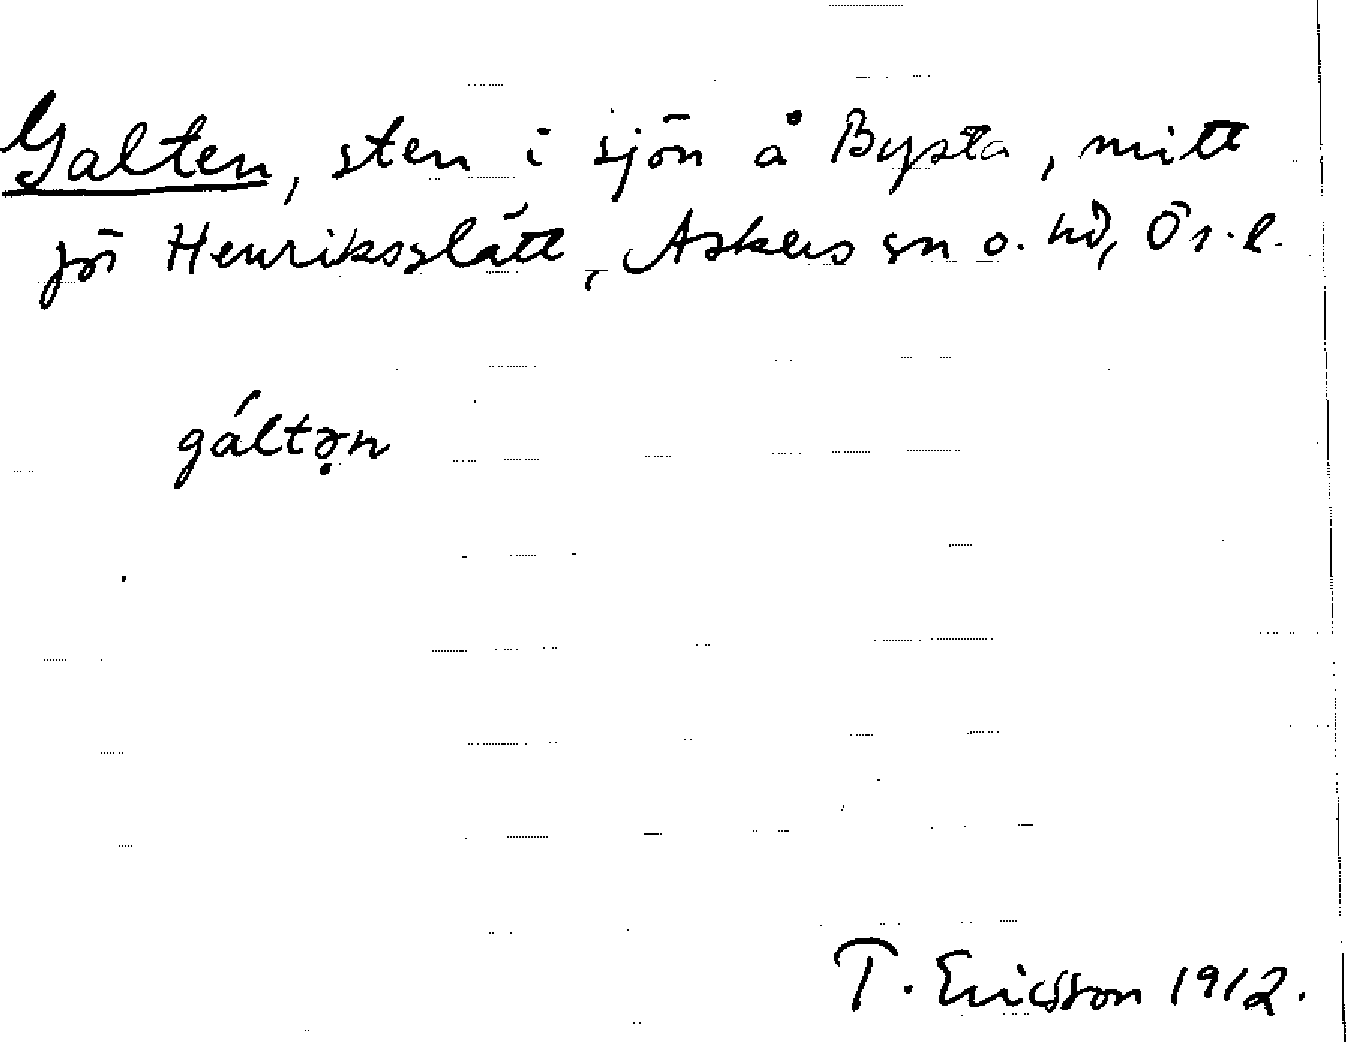 Galten, sten i sjön å Bysta, mitt
för Henrikslätt, Askers sn o. hd, Ör.l.
gáltə̣n
T. Ericsson 1912.